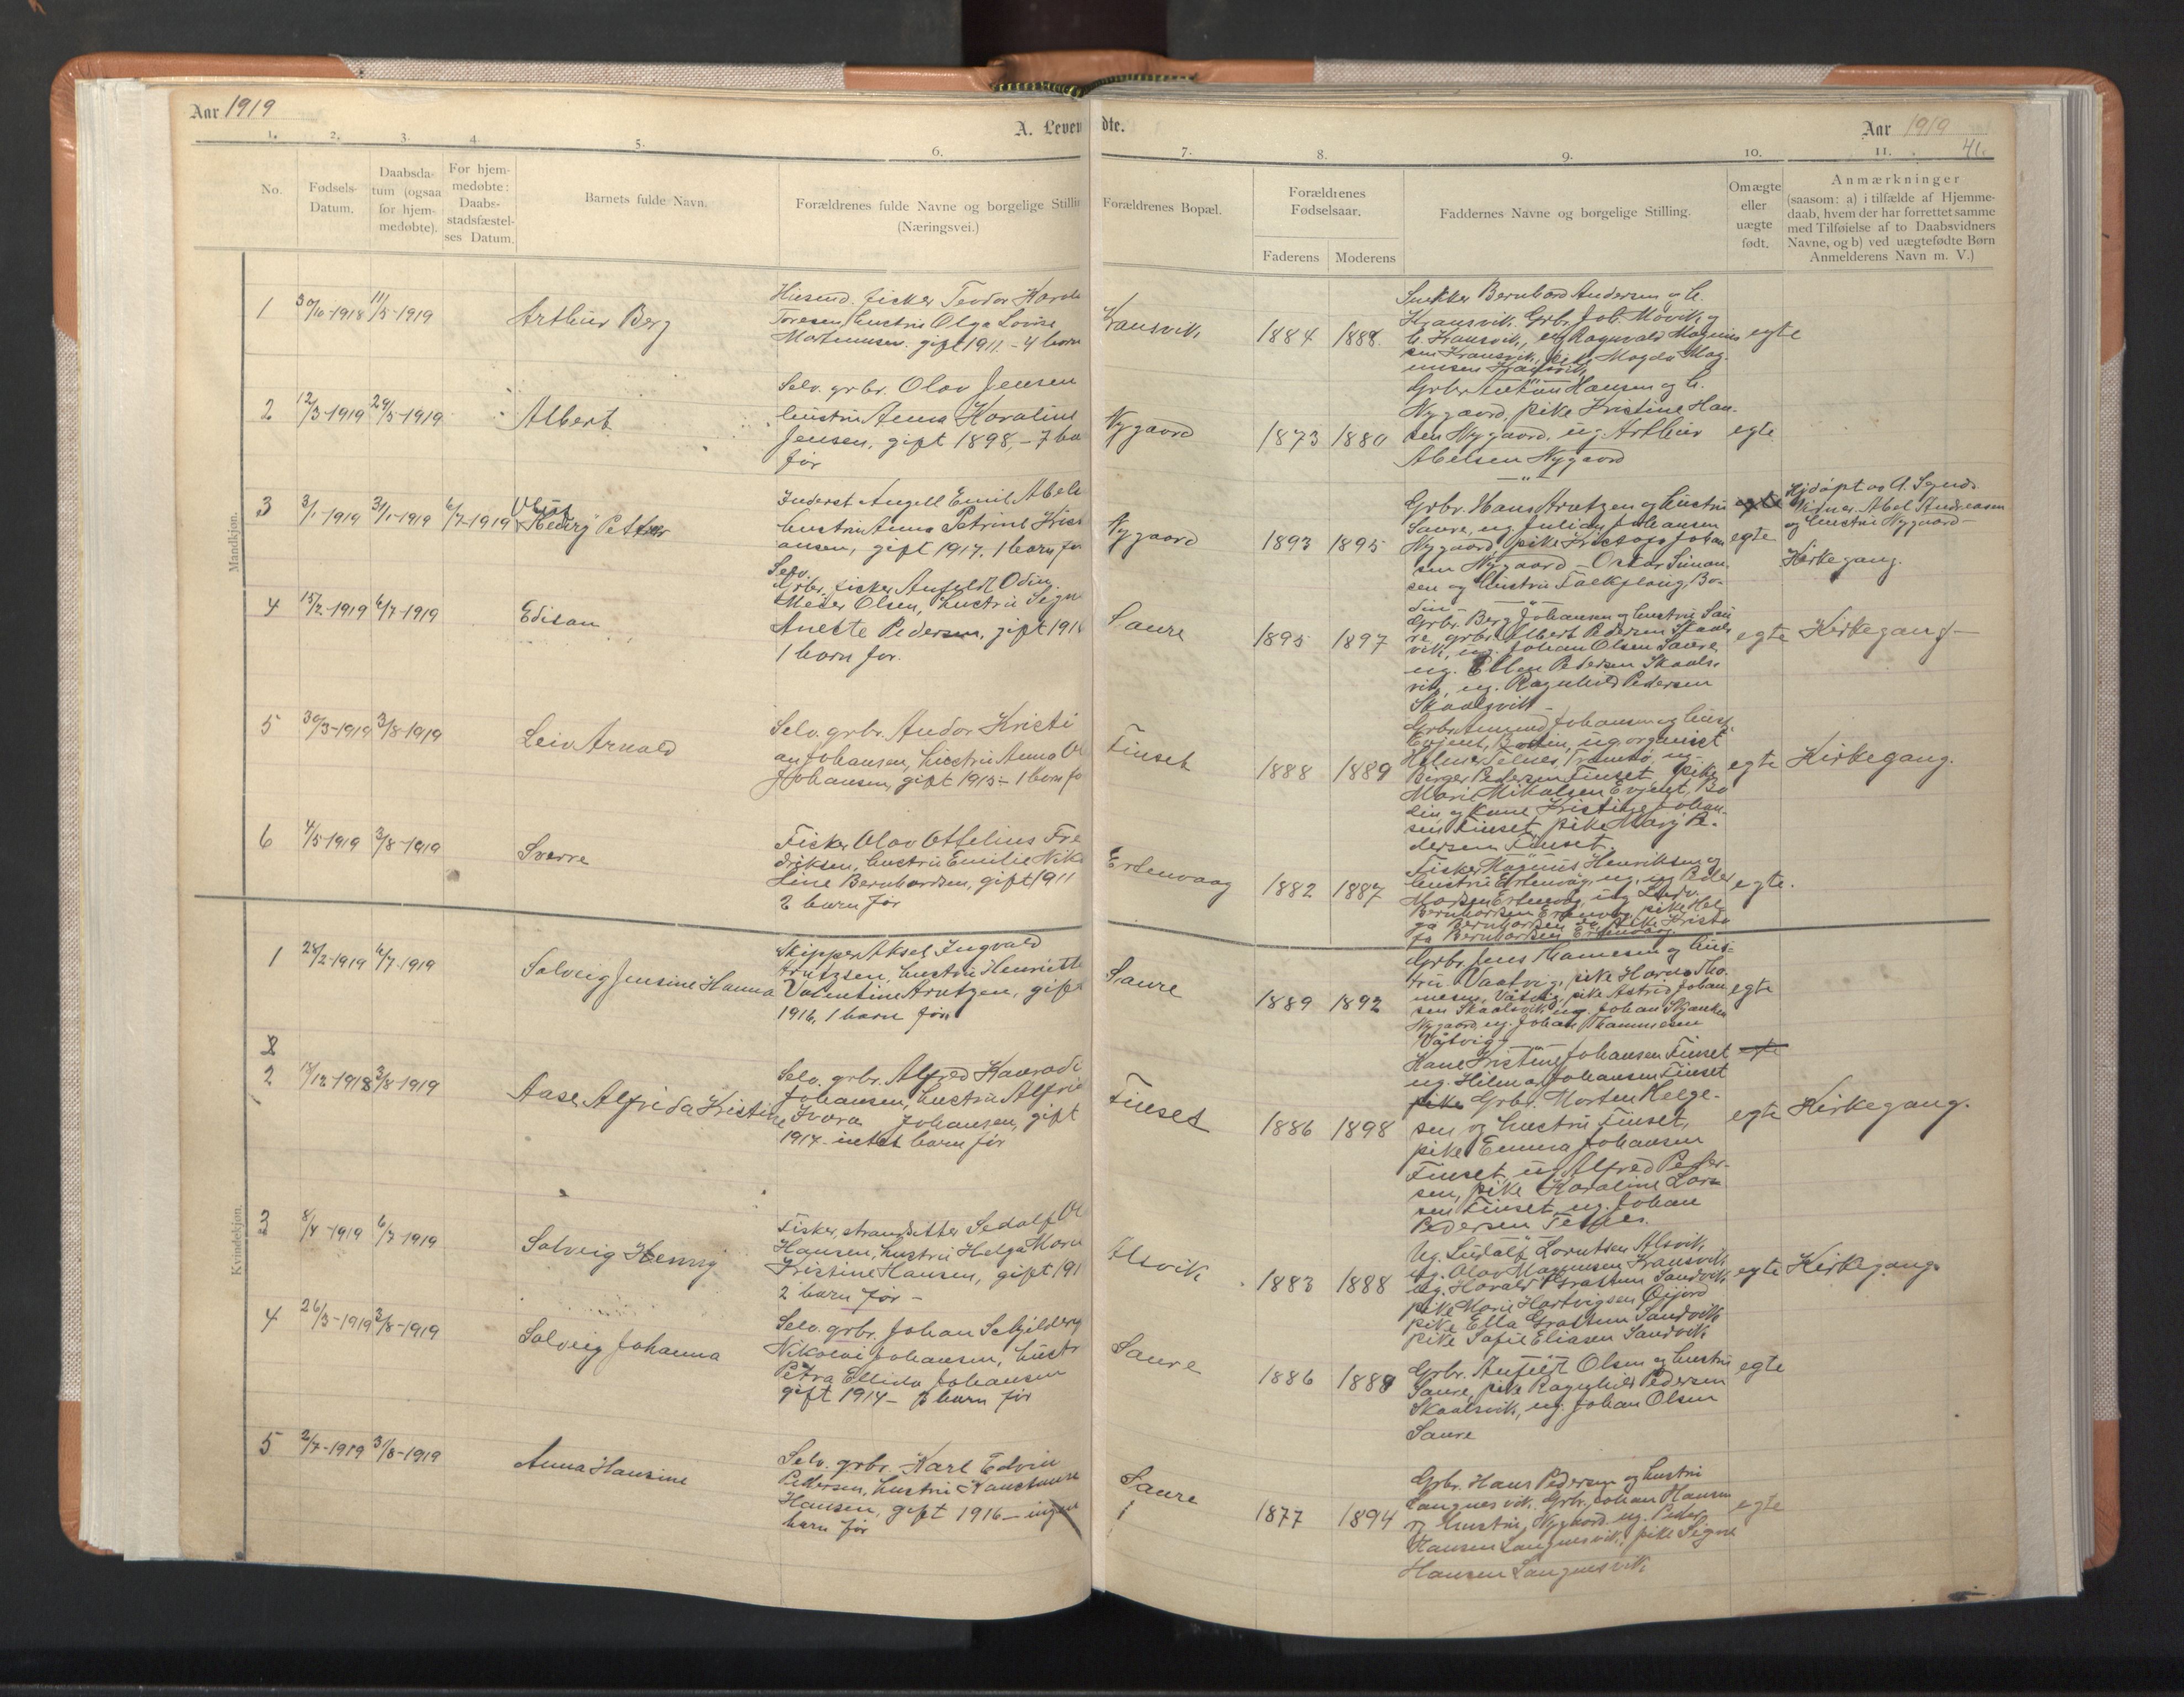 Aar 1919
A. Leven
dte.
Aar 1919
41.
1. 2. 3. 4. 5. 6. 7. 8. 9. 10. 11.
No.
Fødsels-
Datum.
Daabsda-
tum (ogsaa
for hjem-
medøbte).
For hjem-
medøbte:
Daabs-
stadsfæstel-
ses Datum.
Barnets fulde Navn.
Forældrenes fulde Navne og borgelige Stillin
(Næringsvei.)
Forældrenes Bopæl.
Forældrenes
Fødselsaar.
Faderens
Moderens
Faddernes Navne og borgelige Stilling.
Om ægte
eller
uægte
født.
Anmærkninger
(saasom: a) i tilfælde af Hjemme-
daab, hvem der har forrettet samme
med Tilføielse af to Daabsvidners
Navne, og b) ved uægtefødte Børn
Anmelderens Navn m. V.)
Mandkjøn.
1
30/6-1918
11/5-1919
Arthur Berg
Husmd. ficker Teodor
Toresen, hustru Olga Lovise
gift 1911. - 4 born
Kransvik
1884
1888.
Snekker Bernhard Andersen og h.
Kransvik. Grbr. Joh. Movik og
h. Kransvik, Ragnvald Magnus
sen Kransvik, pike Magda Mag
nusen Kransvik
egte
2
12/3-1919
29/5-1919
Albert
Selv. grbr. Olav Jensen
hustru Anna Karaline
Jensen, gift 1898, - 7 ba
før
Nygaard
1873
1880
Grbr. Anton Hansen og h.
Nygaard, pike Kristine Han-
sen Nygaard, ug. Arthur
Abelsen Nygaard
egte
3
3/1-1919
31/1-1919
6/7-1919
Henrij Petter
Inderst Angell Emil Abels
hustru Anna Petrine Krist
ansen, gift 1917. 1 barn før
Nygaard
1893
1895
Grbr. Hans Arntzen og hustru
Saure, ug. Julian Johansen
Nygaard, pike Johan
sen Nygaard - Oskar Simon
sen og hustru Bo-
din
egte
egte
Hjdøpt av A.
Vidner. Abel Andreassen
og hustru Nygaard -
Kirkegang.
4
15/2-1919
6/7-1919
Edison
Selv.
Grbr. ficker Anfeldt Odin
Meier Olsen, hustru Signe
Anette Pedersen, gift 1918
1 barn før.
Saure
1895
1897
Grbr. Berg Johansen og hustru Sau
re, grbr. Albert Pedersen Skaals
vik, ug. Johan Olsen Saure
ug. Ellen Pedersen Skaals-
vik, ug. Ragnhild Pedersen
Skaalsvik -
egte
Kirkegang -
5
30/3-1919
3/8-1919
Leiv Arnold
Selv. grbr. Andor Kristi
an Johansen, hustru Anna Ol
Johansen, gift 1915 - 1 barn fø
Finset
1888
1889
Grbr. Amund Johansen og hust.
Evjent, Bodin, ug. organist
Hilmar Selnes, Tromsø, ug.
Birger Pedersen Finset, pike
Marie Mikalsen Evjent, Bo
din, og kone Kristine Johan-
sen Finset, pike Mary Pe-
dersen Finset.
egte
Kirkegang.
6
4/5-1919
3/8-1919
Sverre
Ficker Olav Ottelius Fre
driksen, hustru Emilie Nik
line Bernhardsen, gift 1911
2 barn før
Ertenvaag
1882
1887
Fisker Magnus Henriksen og
hustru Ertenvåg, ug. Peder
Madsen Ertenvåg, ug. Ludv.
Bernhardsen Ertenvåg, pike Hel
ga Bernhardsen, pike Krista
fa Bernhardsen Ertenvåg.
egte.
Kvindekjøn.
1
28/2-1919
6/7-1919
Solveig Jensine Hanna
Skipper Aksel Ingvald
Arntzen, hustru Henriette
Valentine Arntzen, gift
1916, 1 barn før
Saure
1889
1892
Grbr. Jens Thomesen og hus-
tru Vaatvig, pike Harda Tho
mesen, Våtvig, pike Astrid Johan
sen Skaalsvik, ug. Johan Skjanken
Nygaard, ug. Johan Thommesen
Våtvig
egte
2
2
18/12-1918
3/8-1919
Aase Alfrida Kristine
Selv. grbr. Alfred Konradi
Johansen, hustru Alfrid
Ivora Johansen, gift
1917 - intet barn før
Finset
1886
1898
Kone Kristine Johansen Finset
ug. Hilmar Johansen Finset
pike Grbr. Morten Helge-
sen og hustru Finset,
pike Emma Johansen
Finset, ug. Alfred Peder-
sen, pike Karoline Lorn
sen Finset, ug. Johan
Pedersen
egte
egte
Kirkegang.
3
8/4-1919
6/7-1919
Solveig Henny
Fisker, strandsitter Sedolf Ol
Hansen, hustru Helga Marie
Kristine Hansen, gift 191
2 barn før -
Alsvik
1883
1888
Ug. Ludolf Lorntsen Alsvik
ug. Olav Magnusen Kransvik
ug. Harald Sandvik
pike Marie Hartvigsen
pike Ella Sandvik
pike Sofie Eliasen Sandvik
egte
Kirkegang.
4
26/3-1919
3/8-1919
Solveig Johanna
Selv. grbr. Johan Schjelderg
Nikolai Johansen, hustr
Petra Ellida Johansen
gift 1914 - 2 barn før
Saure
1886
1889
Grbr. Anfeldt Olsen og hustru
Saure, pike Ragnhild Pedersen
Skaalsvik, ug. Johan Olsen
Saure
egte
5
2/7-1919
31/8-1919
Anna Hansine
Selv. grbr. Karl Edvin
Pedersen, hustru Konstanse
Hansen, gift 1916 - ingen
barn før
Saure
1877
1894
Grbr. Hans Pedersen og hustru
Langnesvik. Grbr. Johan Hansen
og hustru, Nygaard. ug. Peder
Hansen Langnesvik, pike Signe
Hansen Langnesvik
egte